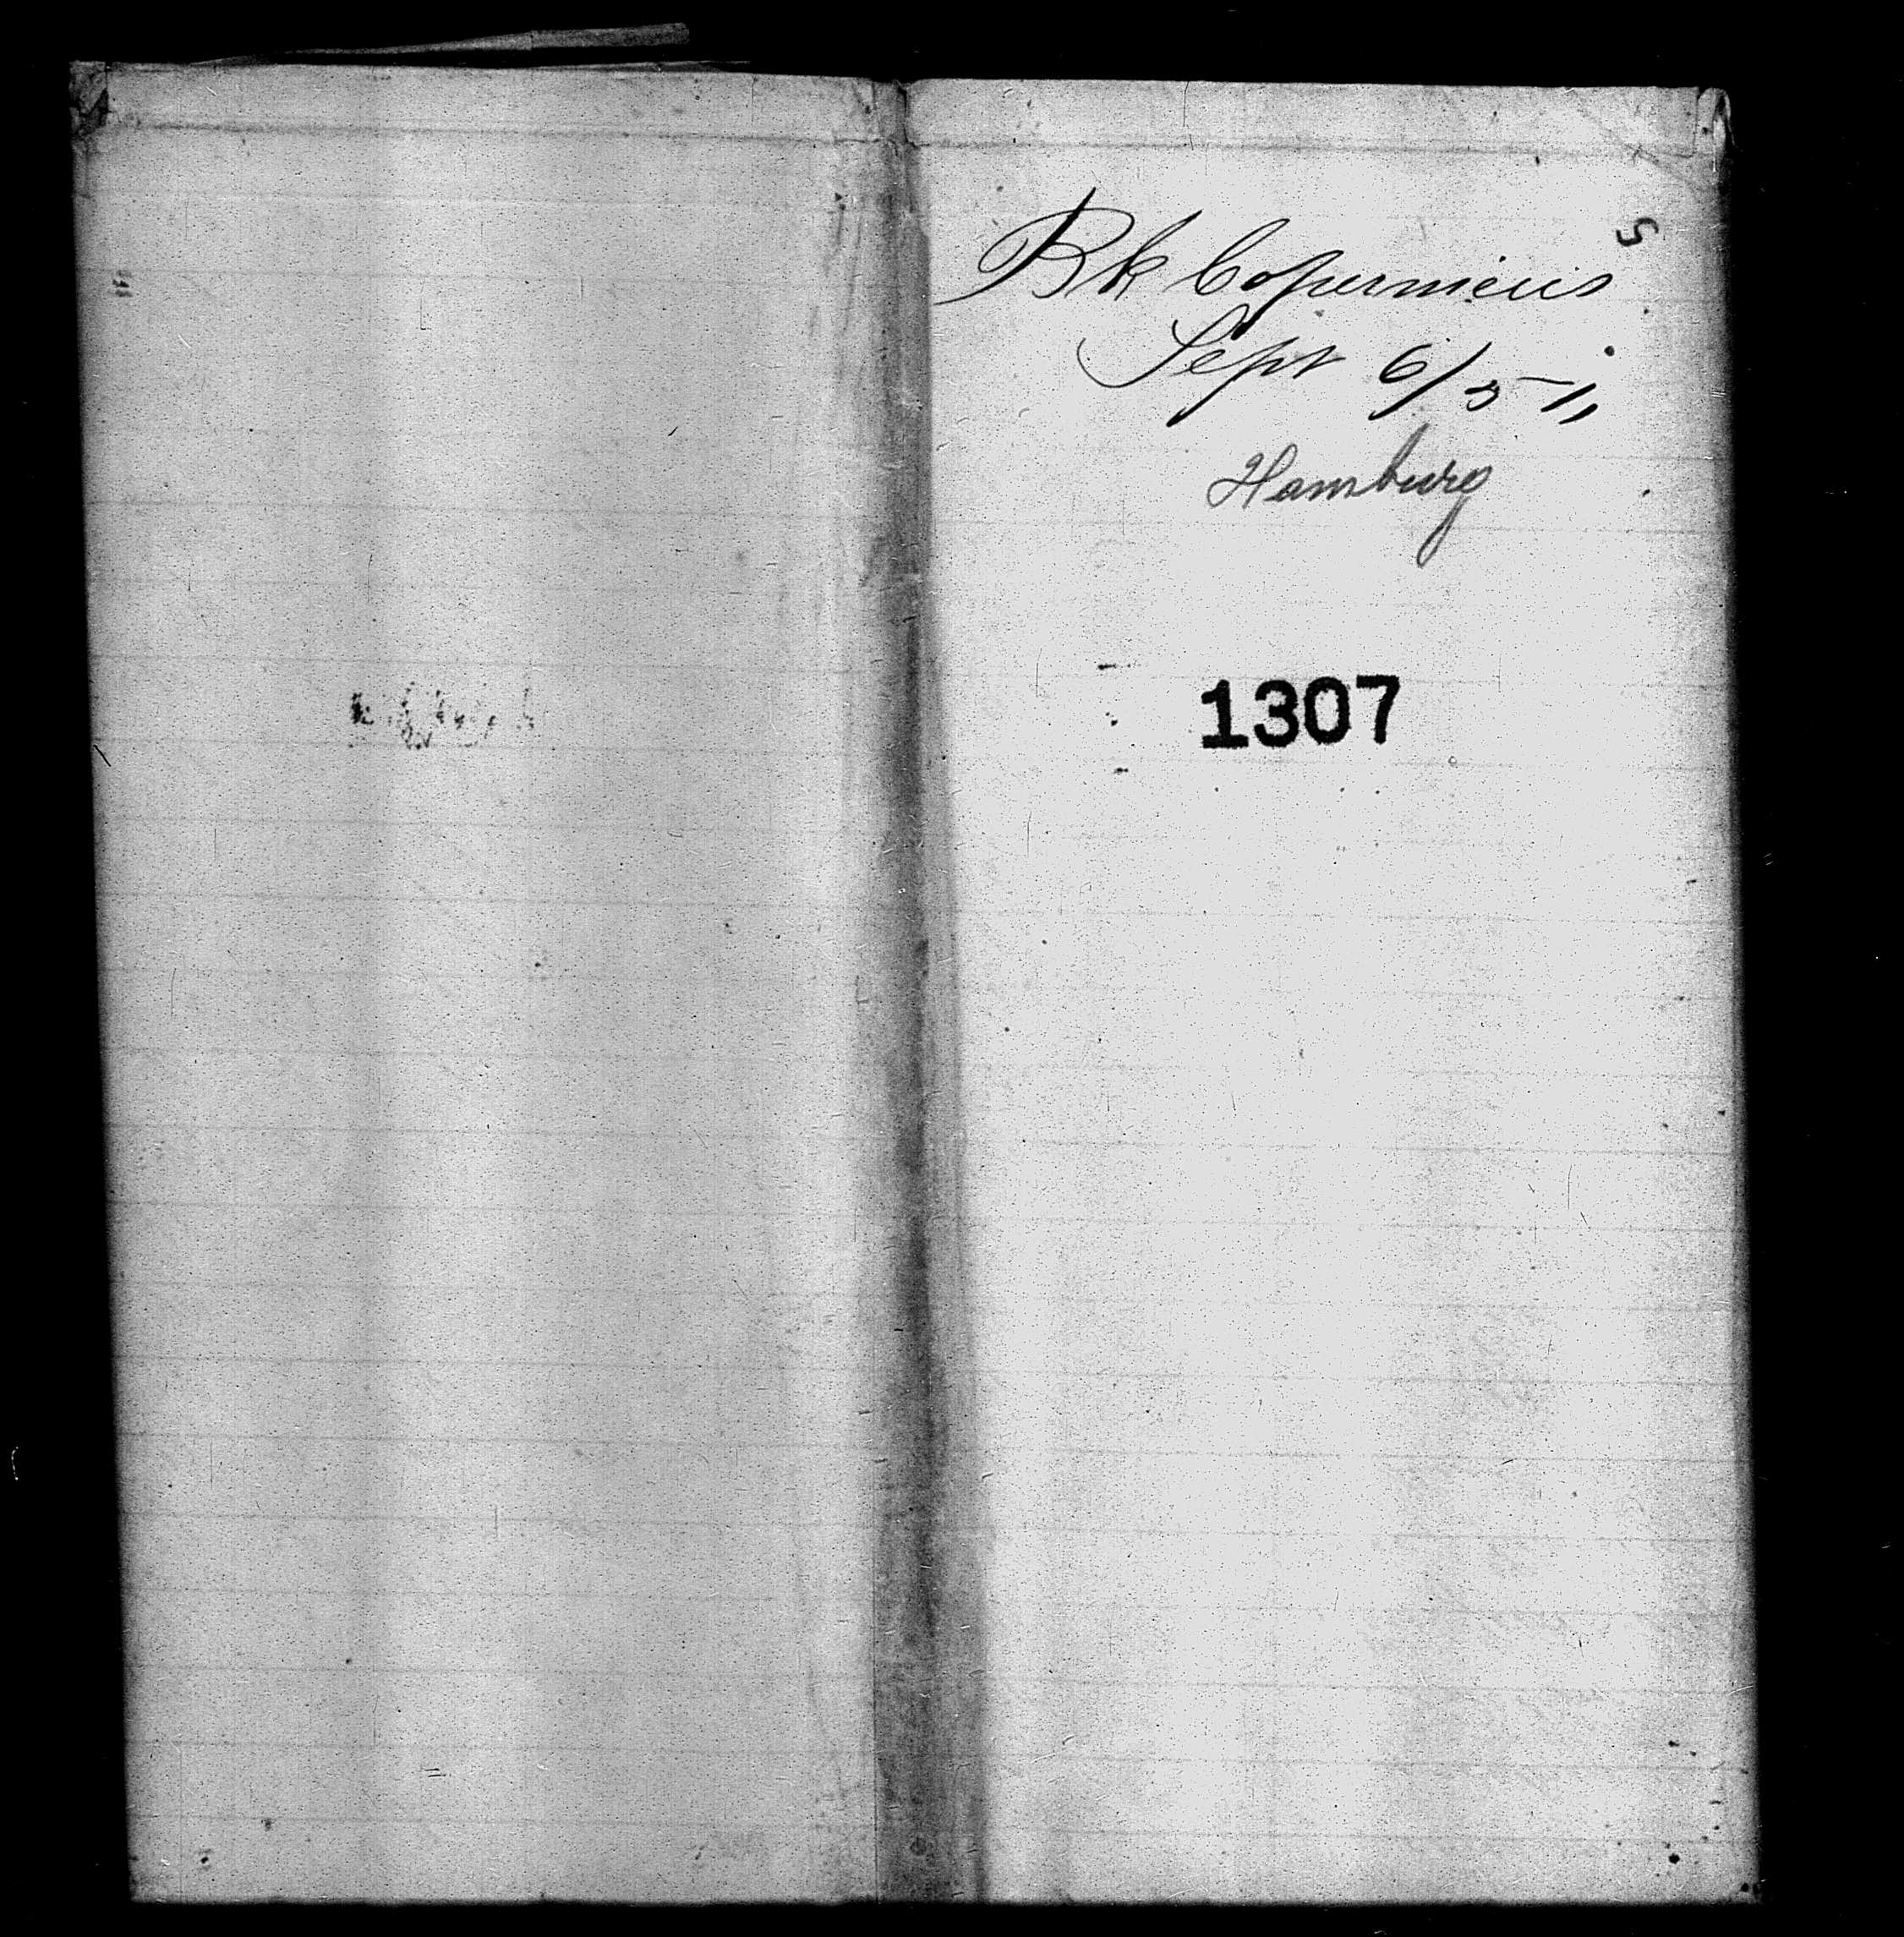 Bk Copernicus
Sept 6/51,
Hamburg
1307